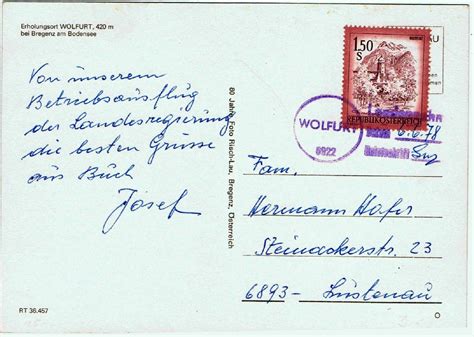 Erholungsort WOLFURT, 420 m
bei Bregenz am Bodensee
Von unserem
Betriebsausflug
der Landesregierung
die besten Grüsse
aus Buch
Josef
RT 36.457
80 Jahre Foto Risch-Lau, Bregenz, Österreich
1.50
S
REPUBLIK ÖSTERREICH
WOLFURT
6922
6.6.78
Fam.
Hermann Hofer
Steinackerstr. 23
6893- Lustenau